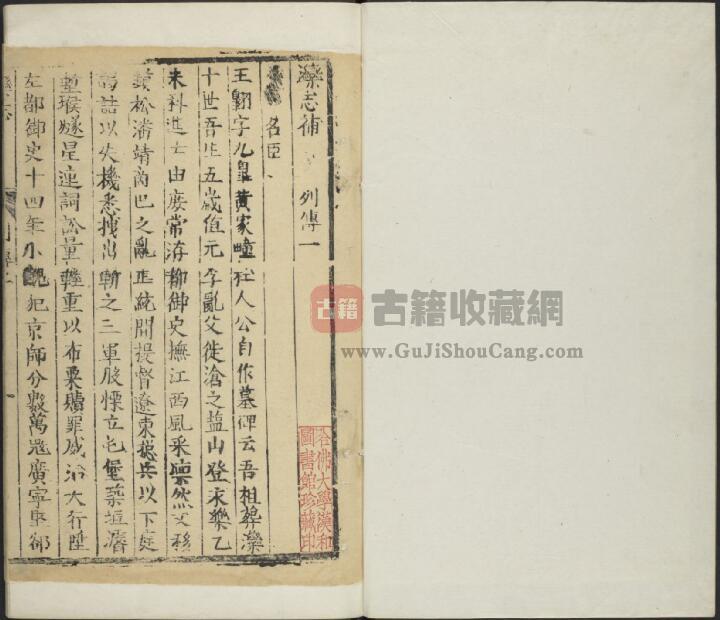 灤志補 列傳一
名臣
王翺字九皐黃家疃社人公自作墓碑云吾祖葬灤
十世吾生五歲值元季亂父徙滄之盐山登永樂乙
未科進士由庶常浙柳御史撫江西風采凛然文移
松潘靖商巴之亂正統間提督遼東揔兵以下庭
詰以失機悉拽出斬之三軍股慄立屯堡築垣濬
塹堠燧星連詞訟量輕重以布粟贖罪威洽大行陞
左都御史十四年小醜犯京師分數萬冦廣寧聖
列傳
哈佛大學漢和
圖書館珍藏印
古籍
古籍收藏網
www.GuJiShouCang.com